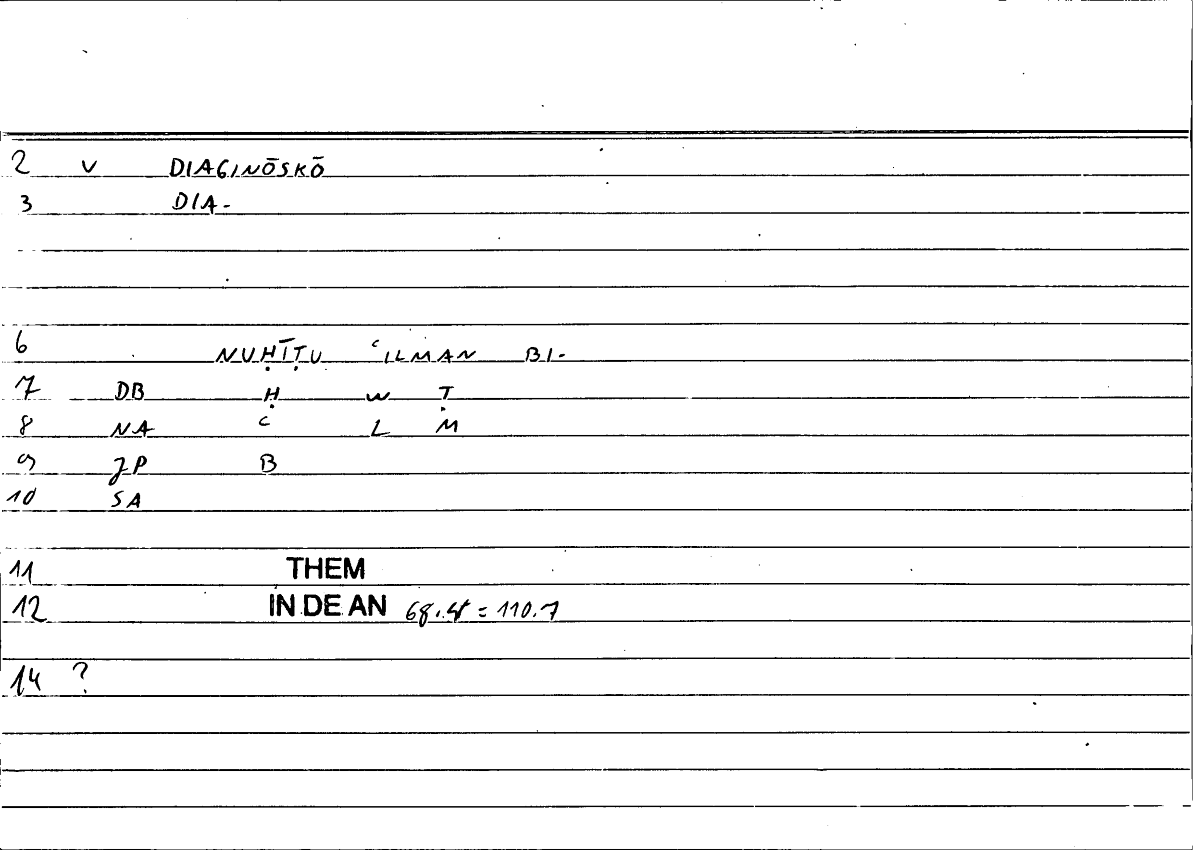 2 V DIAGINŌSKŌ
3 DIA-
6 NUḤĪṬU ʿILMAN BI-
7 DB Ḥ W Ṭ
8 NA ʿ L M
9 JP B
10 SA
11 THEM
12 IN DE AN 68.4 = 110.7
14 ?